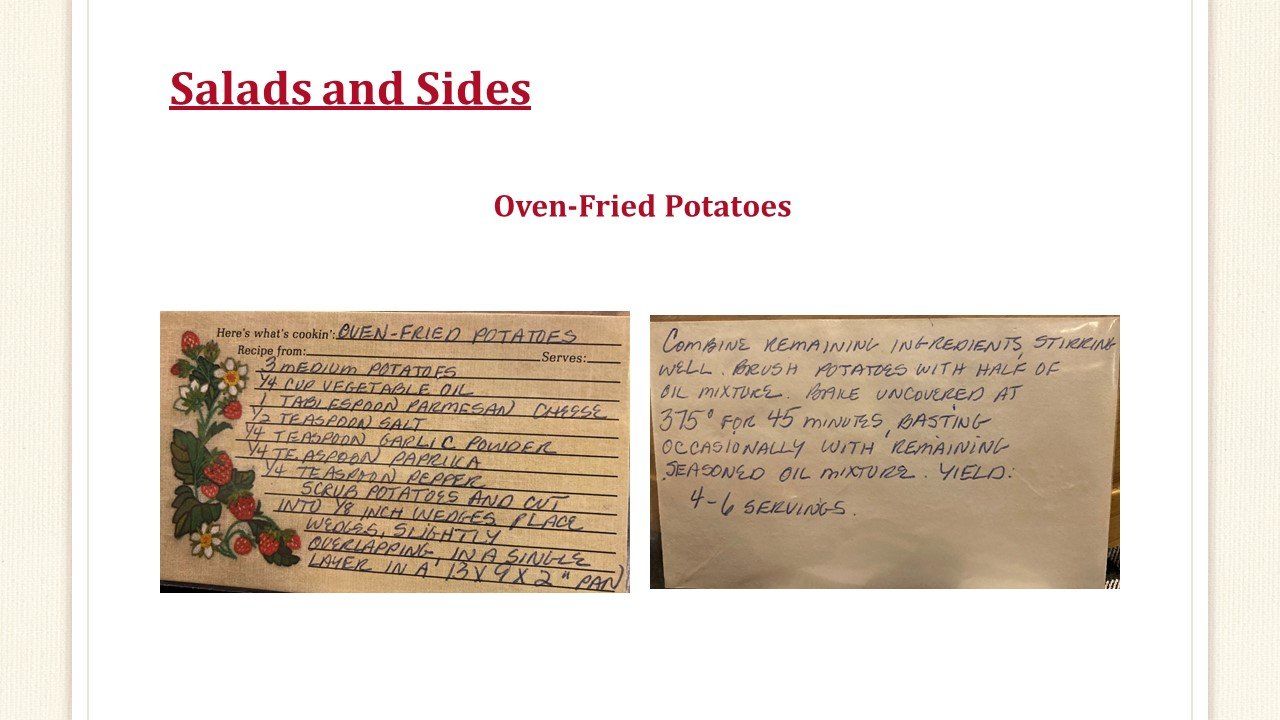 Salads and Sides
Oven-Fried Potatoes
Here's what's cookin': OVEN-FRIED POTATOES
Recipe from: Serves:
3 MEDIUM POTATOES
1/4 CUP VEGETABLE OIL
1 TABLESPOON PARMESAN CHEESE
1/2 TEASPOON SALT
1/4 TEASPOON GARLIC POWDER
1/4 TEASPOON PAPRIKA
1/4 TEASPOON PEPPER
SCRUB POTATOES AND CUT
INTO 1/8 INCH WEDGES PLACE
WEDGES, SLIGHTLY
OVERLAPPING, IN A SINGLE
LAYER IN A 13 X 9 X 2" PAN
COMBINE REMAINING INGREDIENTS, STIRRING
WELL. BRUSH POTATOES WITH HALF OF
OIL MIXTURE. BAKE UNCOVERED AT
375° FOR 45 MINUTES, BASTING
OCCASIONALLY WITH REMAINING
SEASONED OIL MIXTURE. YIELD:
4-6 SERVINGS.